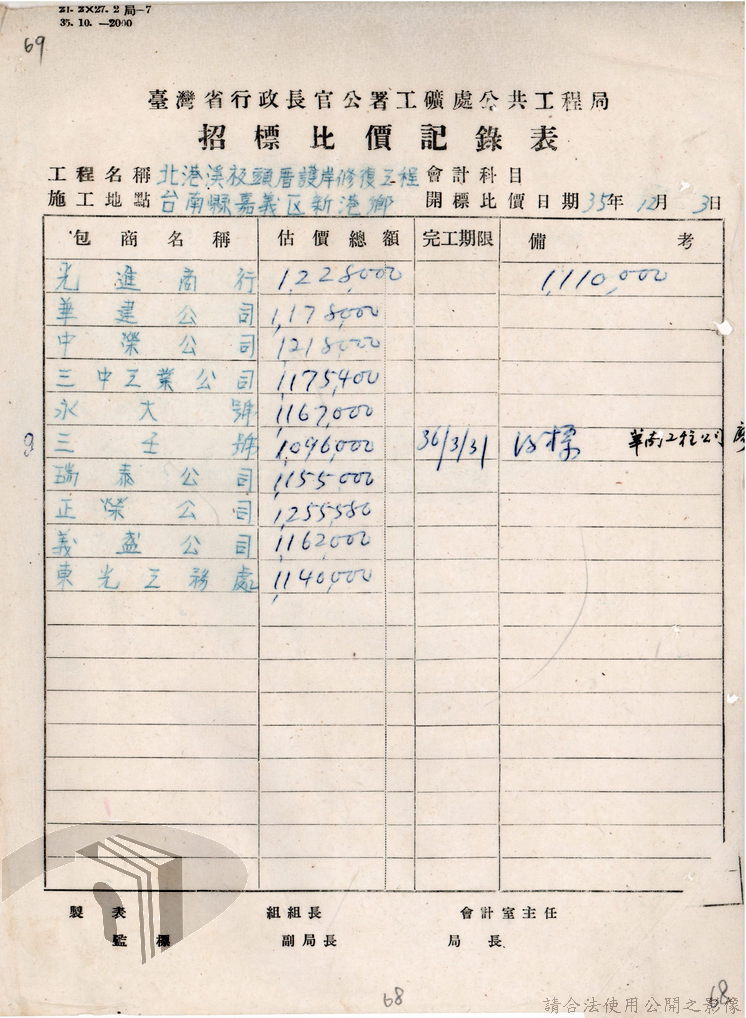 21.2×27.2局-7
35.10.-2000
69
臺灣省行政長官公署工礦處公共工程局
招標比價記錄表
工程名稱 北港溪板頭厝護岸修復工程 會計科目
施工地點 台南縣嘉義区新港鄉 開標比價日期 35年12月3日
包商名稱 估價總額 完工期限 備考
光進商行 1,228,000 1,110,000
華建公司 1,178,000
中榮公司 1,218,000
三中工業公司 1,175,400
永大號 1,167,000
三壬號 1,096,000 36/3/31 得標 華南工程公司
瑞泰公司 1,155,000
正榮公司 1,255,580
義盛公司 1,162,000
東光工務處 1,140,000
製表 組組長 會計室主任
監標 副局長 局長
68
68
請合法使用公開之影像